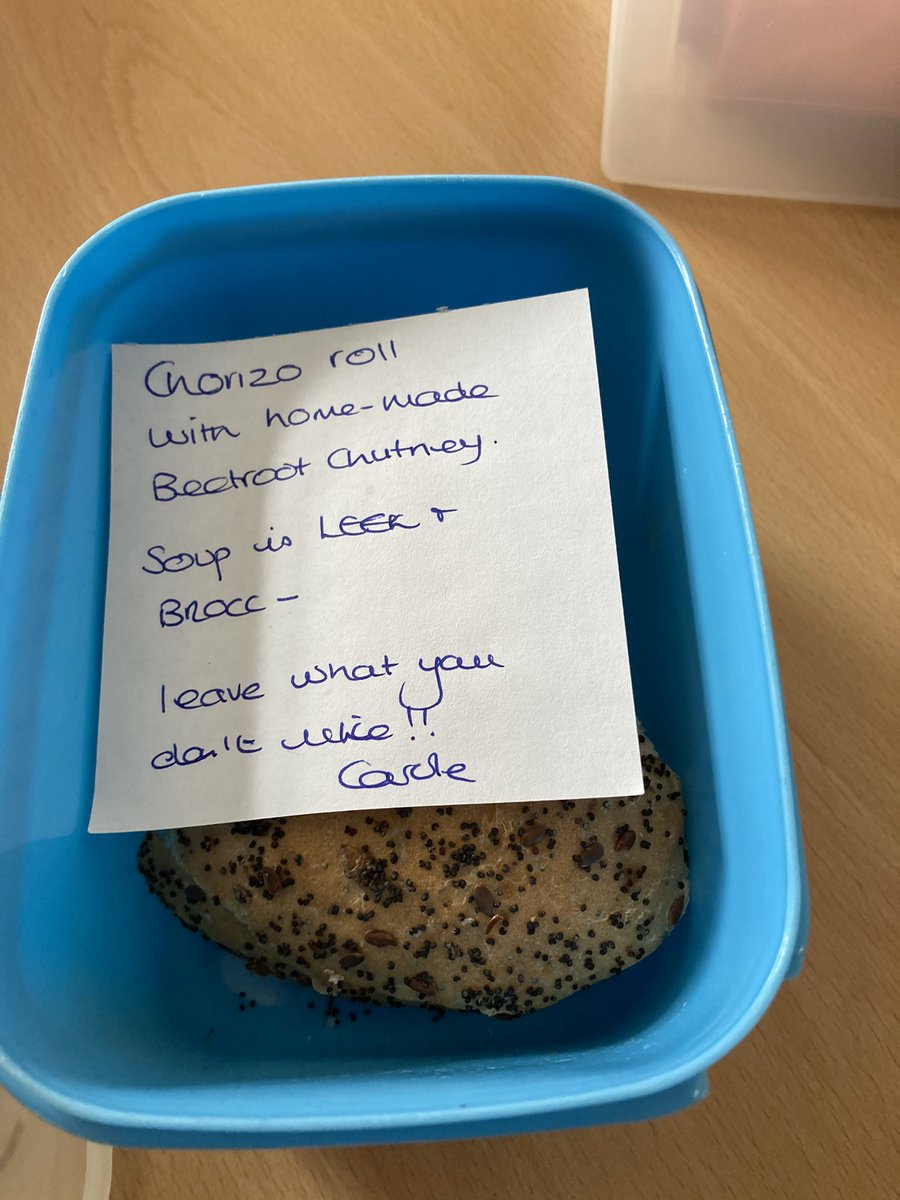 Chorizo roll
with home-made
Beetroot Chutney.
Soup is LEEK +
BROCC -
leave what you
don't like!!
Carole